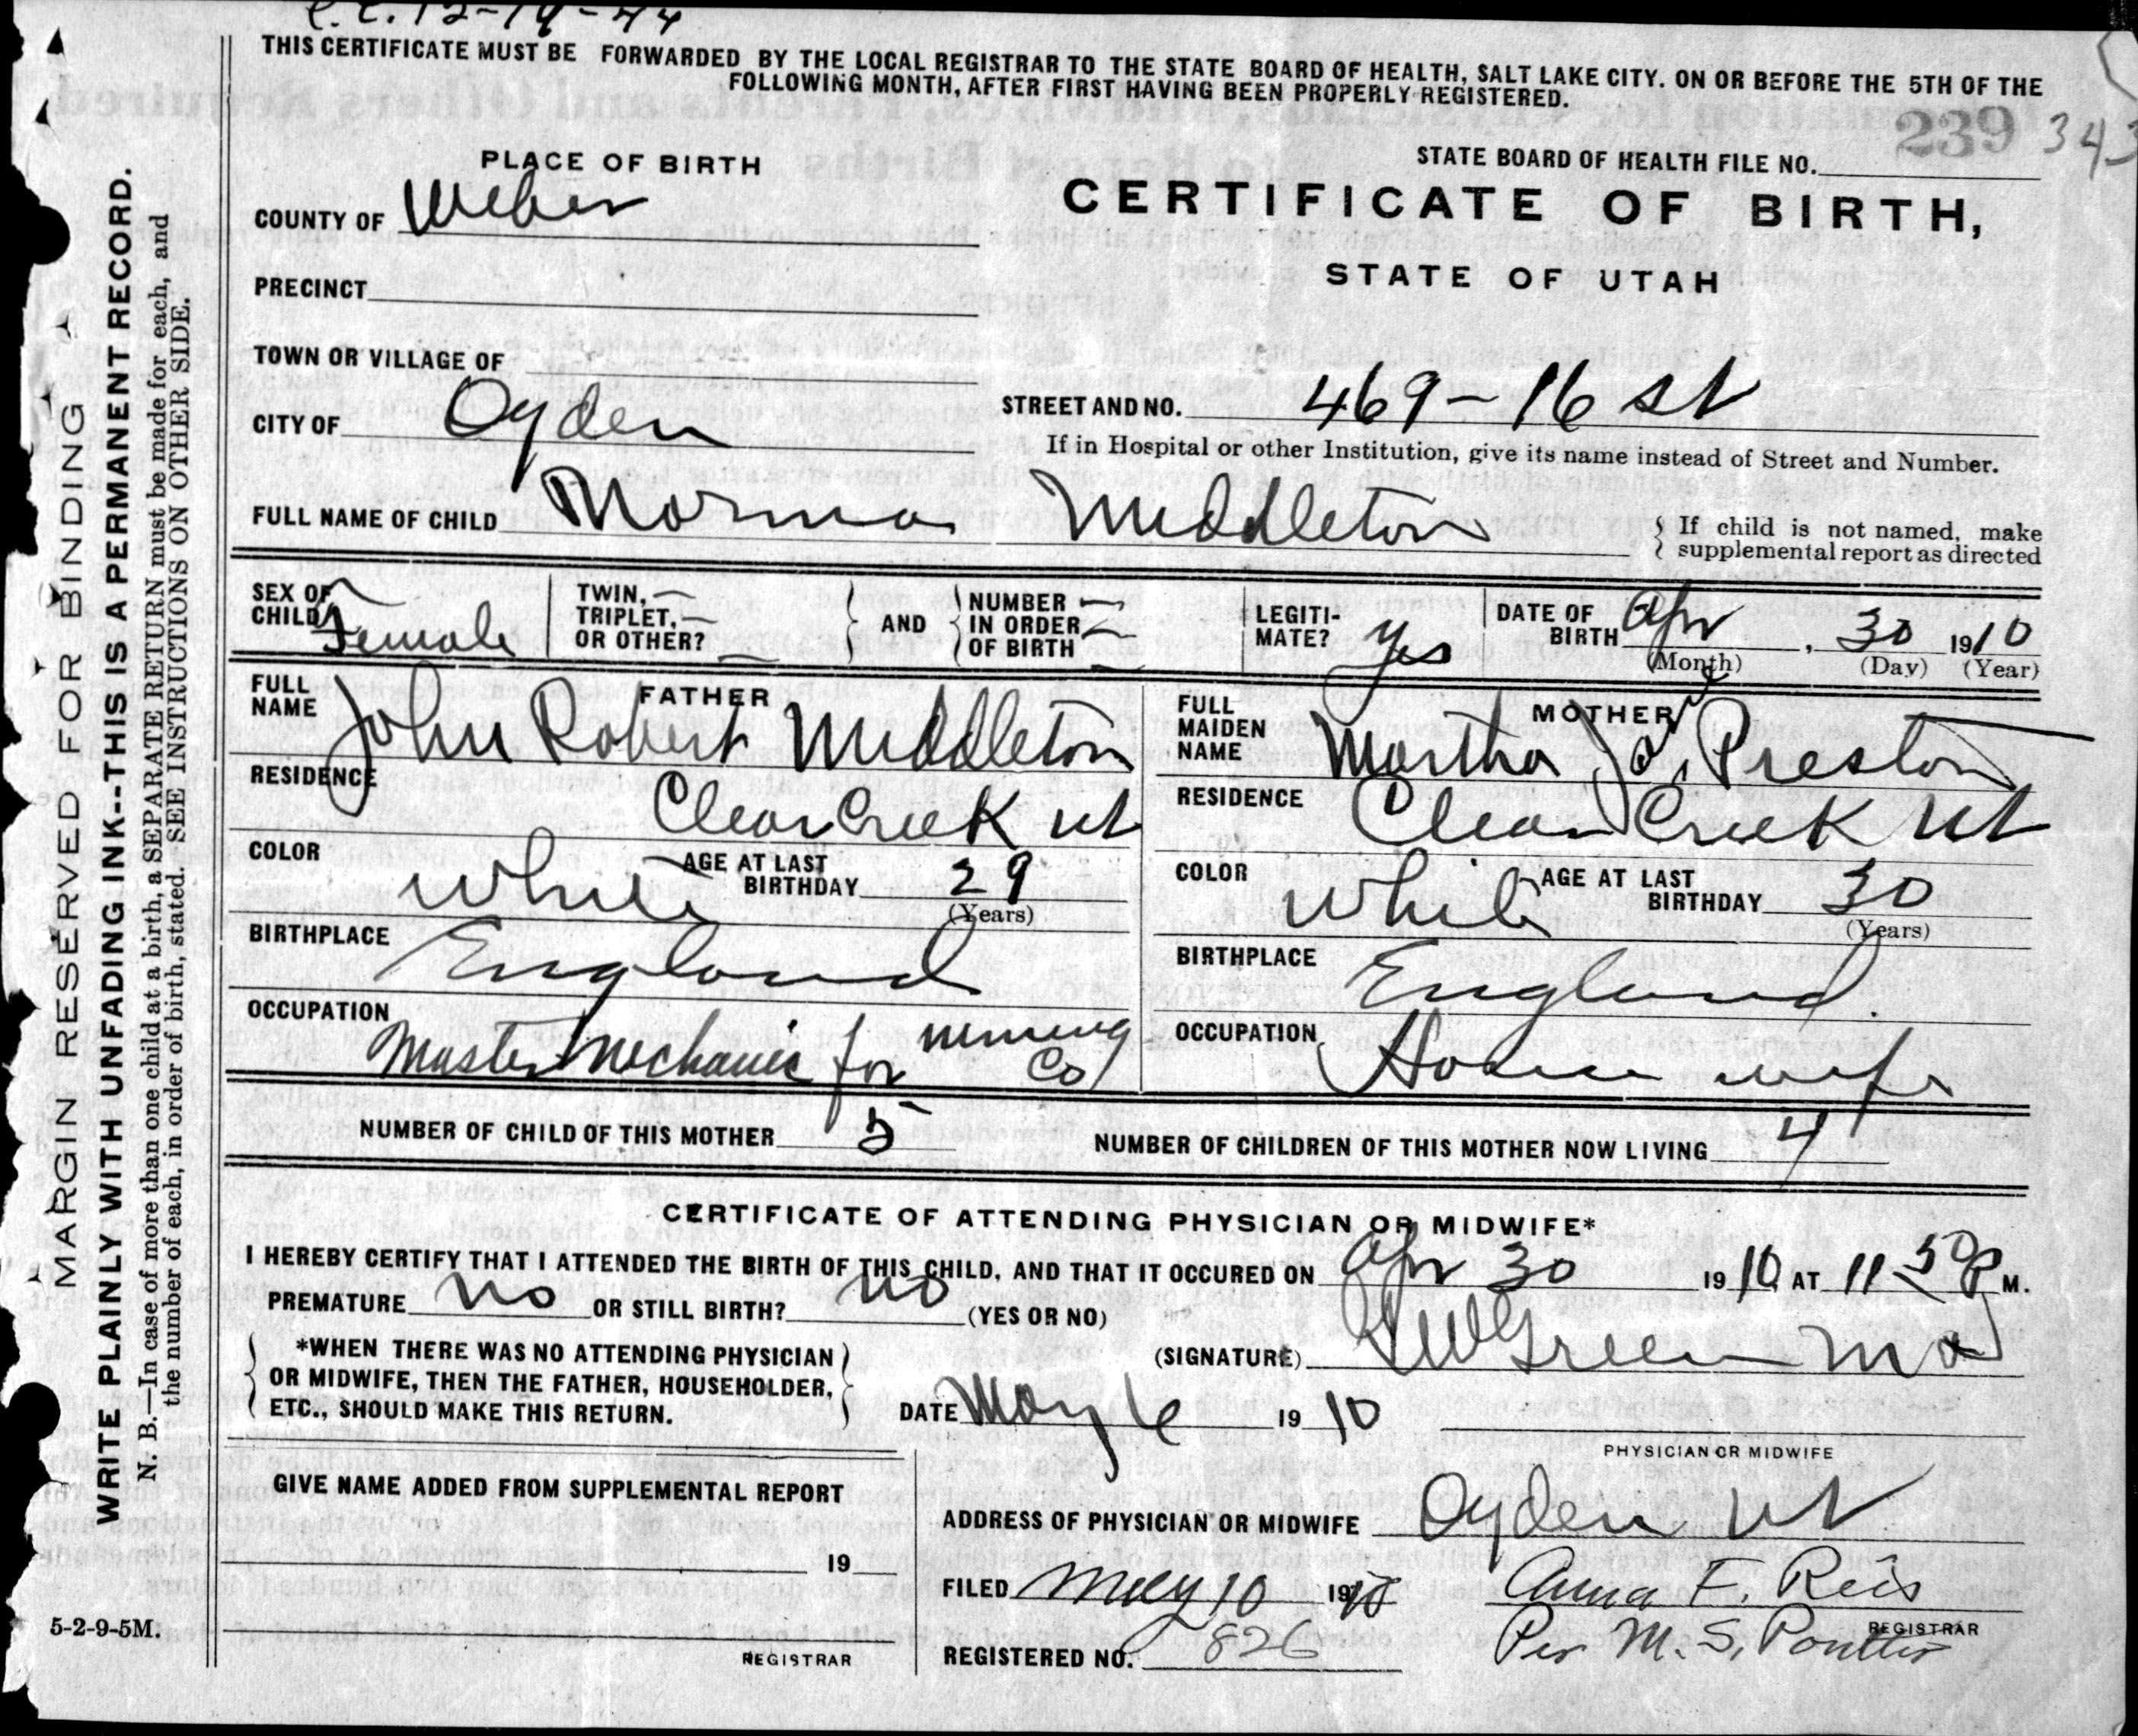 c.c. 12-19-44
THIS CERTIFICATE MUST BE FORWARDED BY THE LOCAL REGISTRAR TO THE STATE BOARD OF HEALTH, SALT LAKE CITY. ON OR BEFORE THE 5TH OF THE
FOLLOWING MONTH, AFTER FIRST HAVING BEEN PROPERLY REGISTERED.
239 343
PLACE OF BIRTH
STATE BOARD OF HEALTH FILE NO.
COUNTY OF Weber
CERTIFICATE OF BIRTH,
PRECINCT
STATE OF UTAH
TOWN OR VILLAGE OF
CITY OF Ogden
STREET AND NO. 469-16 St
If in Hospital or other Institution, give its name instead of Street and Number.
FULL NAME OF CHILD Norma Middleton
If child is not named, make
supplemental report as directed
SEX OF CHILD Female
TWIN, TRIPLET, OR OTHER?
AND
NUMBER IN ORDER OF BIRTH
LEGITI-MATE? Yes
DATE OF BIRTH Apr, 30 1910
(Month) (Day) (Year)
FATHER
FULL NAME John Robert Middleton
RESIDENCE Clear Creek Ut
COLOR White AGE AT LAST BIRTHDAY 29
(Years)
BIRTHPLACE England
OCCUPATION Master Mechanic for mining Co
MOTHER
FULL MAIDEN NAME Martha Jane Preston
RESIDENCE Clear Creek Ut
COLOR White AGE AT LAST BIRTHDAY 30
(Years)
BIRTHPLACE England
OCCUPATION House wife
NUMBER OF CHILD OF THIS MOTHER 5
NUMBER OF CHILDREN OF THIS MOTHER NOW LIVING 4
CERTIFICATE OF ATTENDING PHYSICIAN OR MIDWIFE*
I HEREBY CERTIFY THAT I ATTENDED THE BIRTH OF THIS CHILD, AND THAT IT OCCURED ON Apr 30 1910 AT 11 50 P M.
PREMATURE no OR STILL BIRTH? no (YES OR NO)
*WHEN THERE WAS NO ATTENDING PHYSICIAN
OR MIDWIFE, THEN THE FATHER, HOUSEHOLDER,
ETC., SHOULD MAKE THIS RETURN.
(SIGNATURE) Green MD
DATE May 6 1910
PHYSICIAN OR MIDWIFE
GIVE NAME ADDED FROM SUPPLEMENTAL REPORT
19
REGISTRAR
ADDRESS OF PHYSICIAN OR MIDWIFE Ogden Ut
FILED May 10 1910
Anna F. Reis
REGISTRAR
REGISTERED NO. 826
Per M. S.
5-2-9-5M.
MARGIN RESERVED FOR BINDING
WRITE PLAINLY WITH UNFADING INK--THIS IS A PERMANENT RECORD.
N. B.—In case of more than one child at a birth, a SEPARATE RETURN must be made for each, and
the number of each, in order of birth, stated. SEE INSTRUCTIONS ON OTHER SIDE.